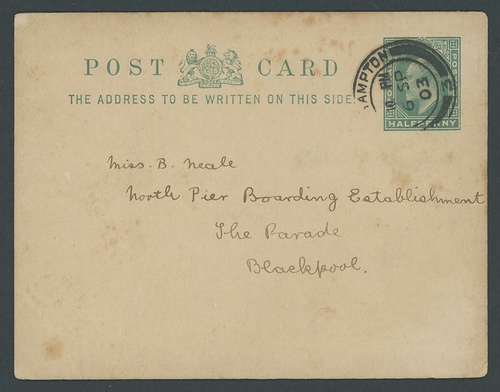 POST CARD
THE ADDRESS TO BE WRITTEN ON THIS SIDE.
HALFPENNY
AMPTON
PM
9 SP
03
Miss. B. Neale
North Pier Boarding Establishment
The Parade
Blackpool.